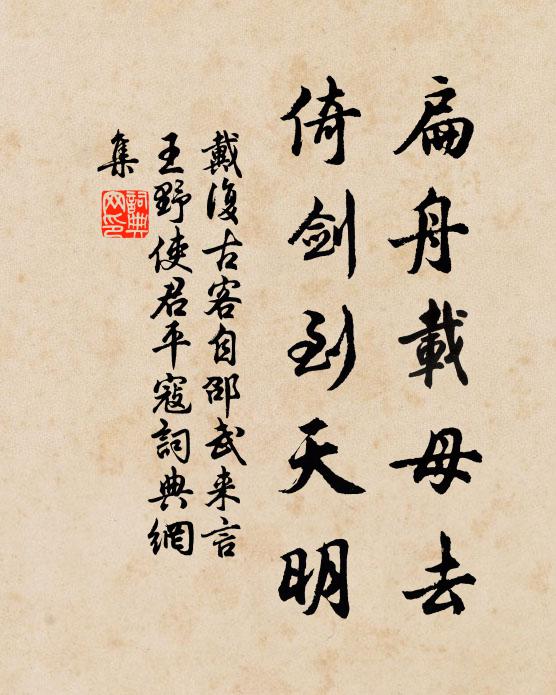 扁舟載母去
倚劍到天明
戴復古客自邵武来言
王野使君平寇詞典網
集
詞典网印